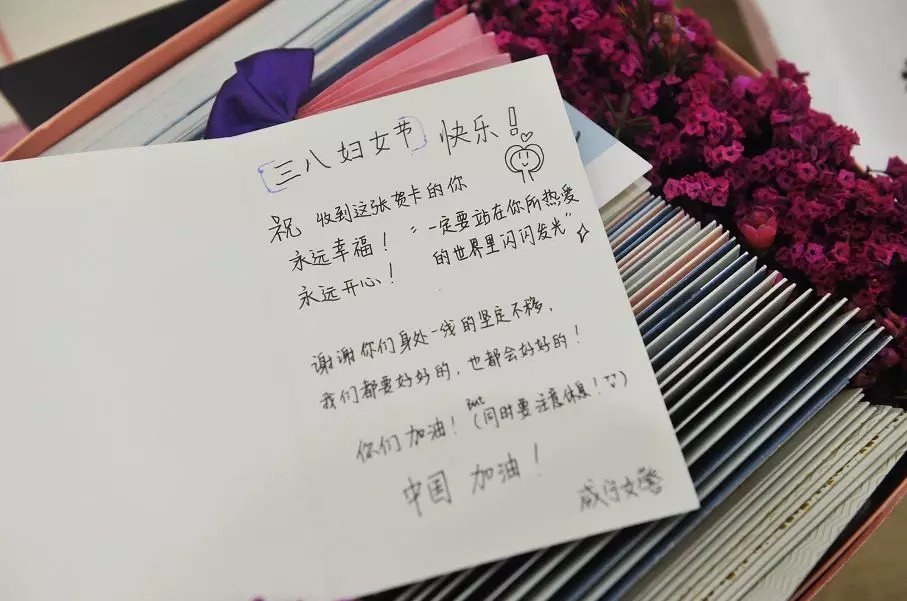 [三八妇女节]快乐！
祝 收到这张贺卡的你
永远幸福！“一定要站在你所热爱
永远开心！ 的世界里闪闪发光”
谢谢你们身处一线的坚定不移，
我们都要好好的，也都会好好的！
你们加油！(But 同时要注意休息！)
中国 加油！